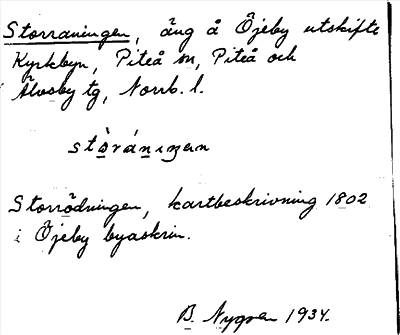 Storraningen, äng å Öjeby utskifte
Kyrkbyn, Piteå sn, Piteå och
Älvsby tg, Norrb. l.
stòrániŋən
Storrödningen, kartbeskrivning 1802
i Öjeby byaskrin.
B. Nygren 1934.